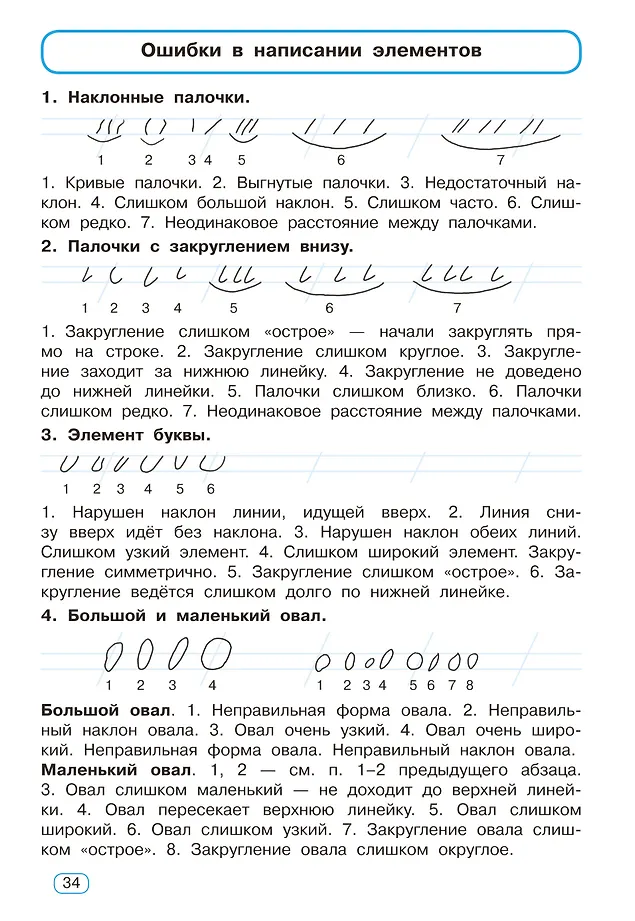 Ошибки в написании элементов
1. Наклонные палочки.
1 2 3 4 5 6 7
1. Кривые палочки. 2. Выгнутые палочки. 3. Недостаточный на-
клон. 4. Слишком большой наклон. 5. Слишком часто. 6. Слиш-
ком редко. 7. Неодинаковое расстояние между палочками.
2. Палочки с закруглением внизу.
1 2 3 4 5 6 7
1. Закругление слишком «острое» — начали закруглять пря-
мо на строке. 2. Закругление слишком круглое. 3. Закругле-
ние заходит за нижнюю линейку. 4. Закругление не доведено
до нижней линейки. 5. Палочки слишком близко. 6. Палочки
слишком редко. 7. Неодинаковое расстояние между палочками.
3. Элемент буквы.
1 2 3 4 5 6
1. Нарушен наклон линии, идущей вверх. 2. Линия сни-
зу вверх идёт без наклона. 3. Нарушен наклон обеих линий.
Слишком узкий элемент. 4. Слишком широкий элемент. Закру-
гление симметрично. 5. Закругление слишком «острое». 6. За-
кругление ведётся слишком долго по нижней линейке.
4. Большой и маленький овал.
1 2 3 4 1 2 3 4 5 6 7 8
Большой овал. 1. Неправильная форма овала. 2. Неправиль-
ный наклон овала. 3. Овал очень узкий. 4. Овал очень широ-
кий. Неправильная форма овала. Неправильный наклон овала.
Маленький овал. 1, 2 — см. п. 1–2 предыдущего абзаца.
3. Овал слишком маленький — не доходит до верхней линей-
ки. 4. Овал пересекает верхнюю линейку. 5. Овал слишком
широкий. 6. Овал слишком узкий. 7. Закругление овала слиш-
ком «острое». 8. Закругление овала слишком округлое.
34